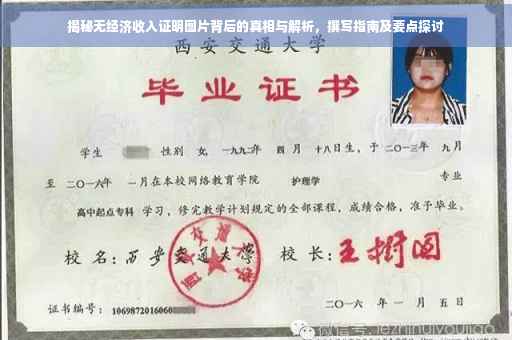 揭秘无经济收入证明图片背后的真相与解析，撰写指南及要点探讨
西安交通大学
毕业证书
学生 性别 女，一九九二年 四月 十八日生，于二〇一三年 九月
至 二〇一六年 一月在本校网络教育学院 护理学 专业
高中起点专科 学习，修完教学计划规定的全部课程，成绩合格，准予毕业。
校 名：西安交通大学 校 长：王树国
西安交通大学
证书编号：1069872016060
二〇一六 年 一 月 五 日
微信号: jezhihuiyoujiao